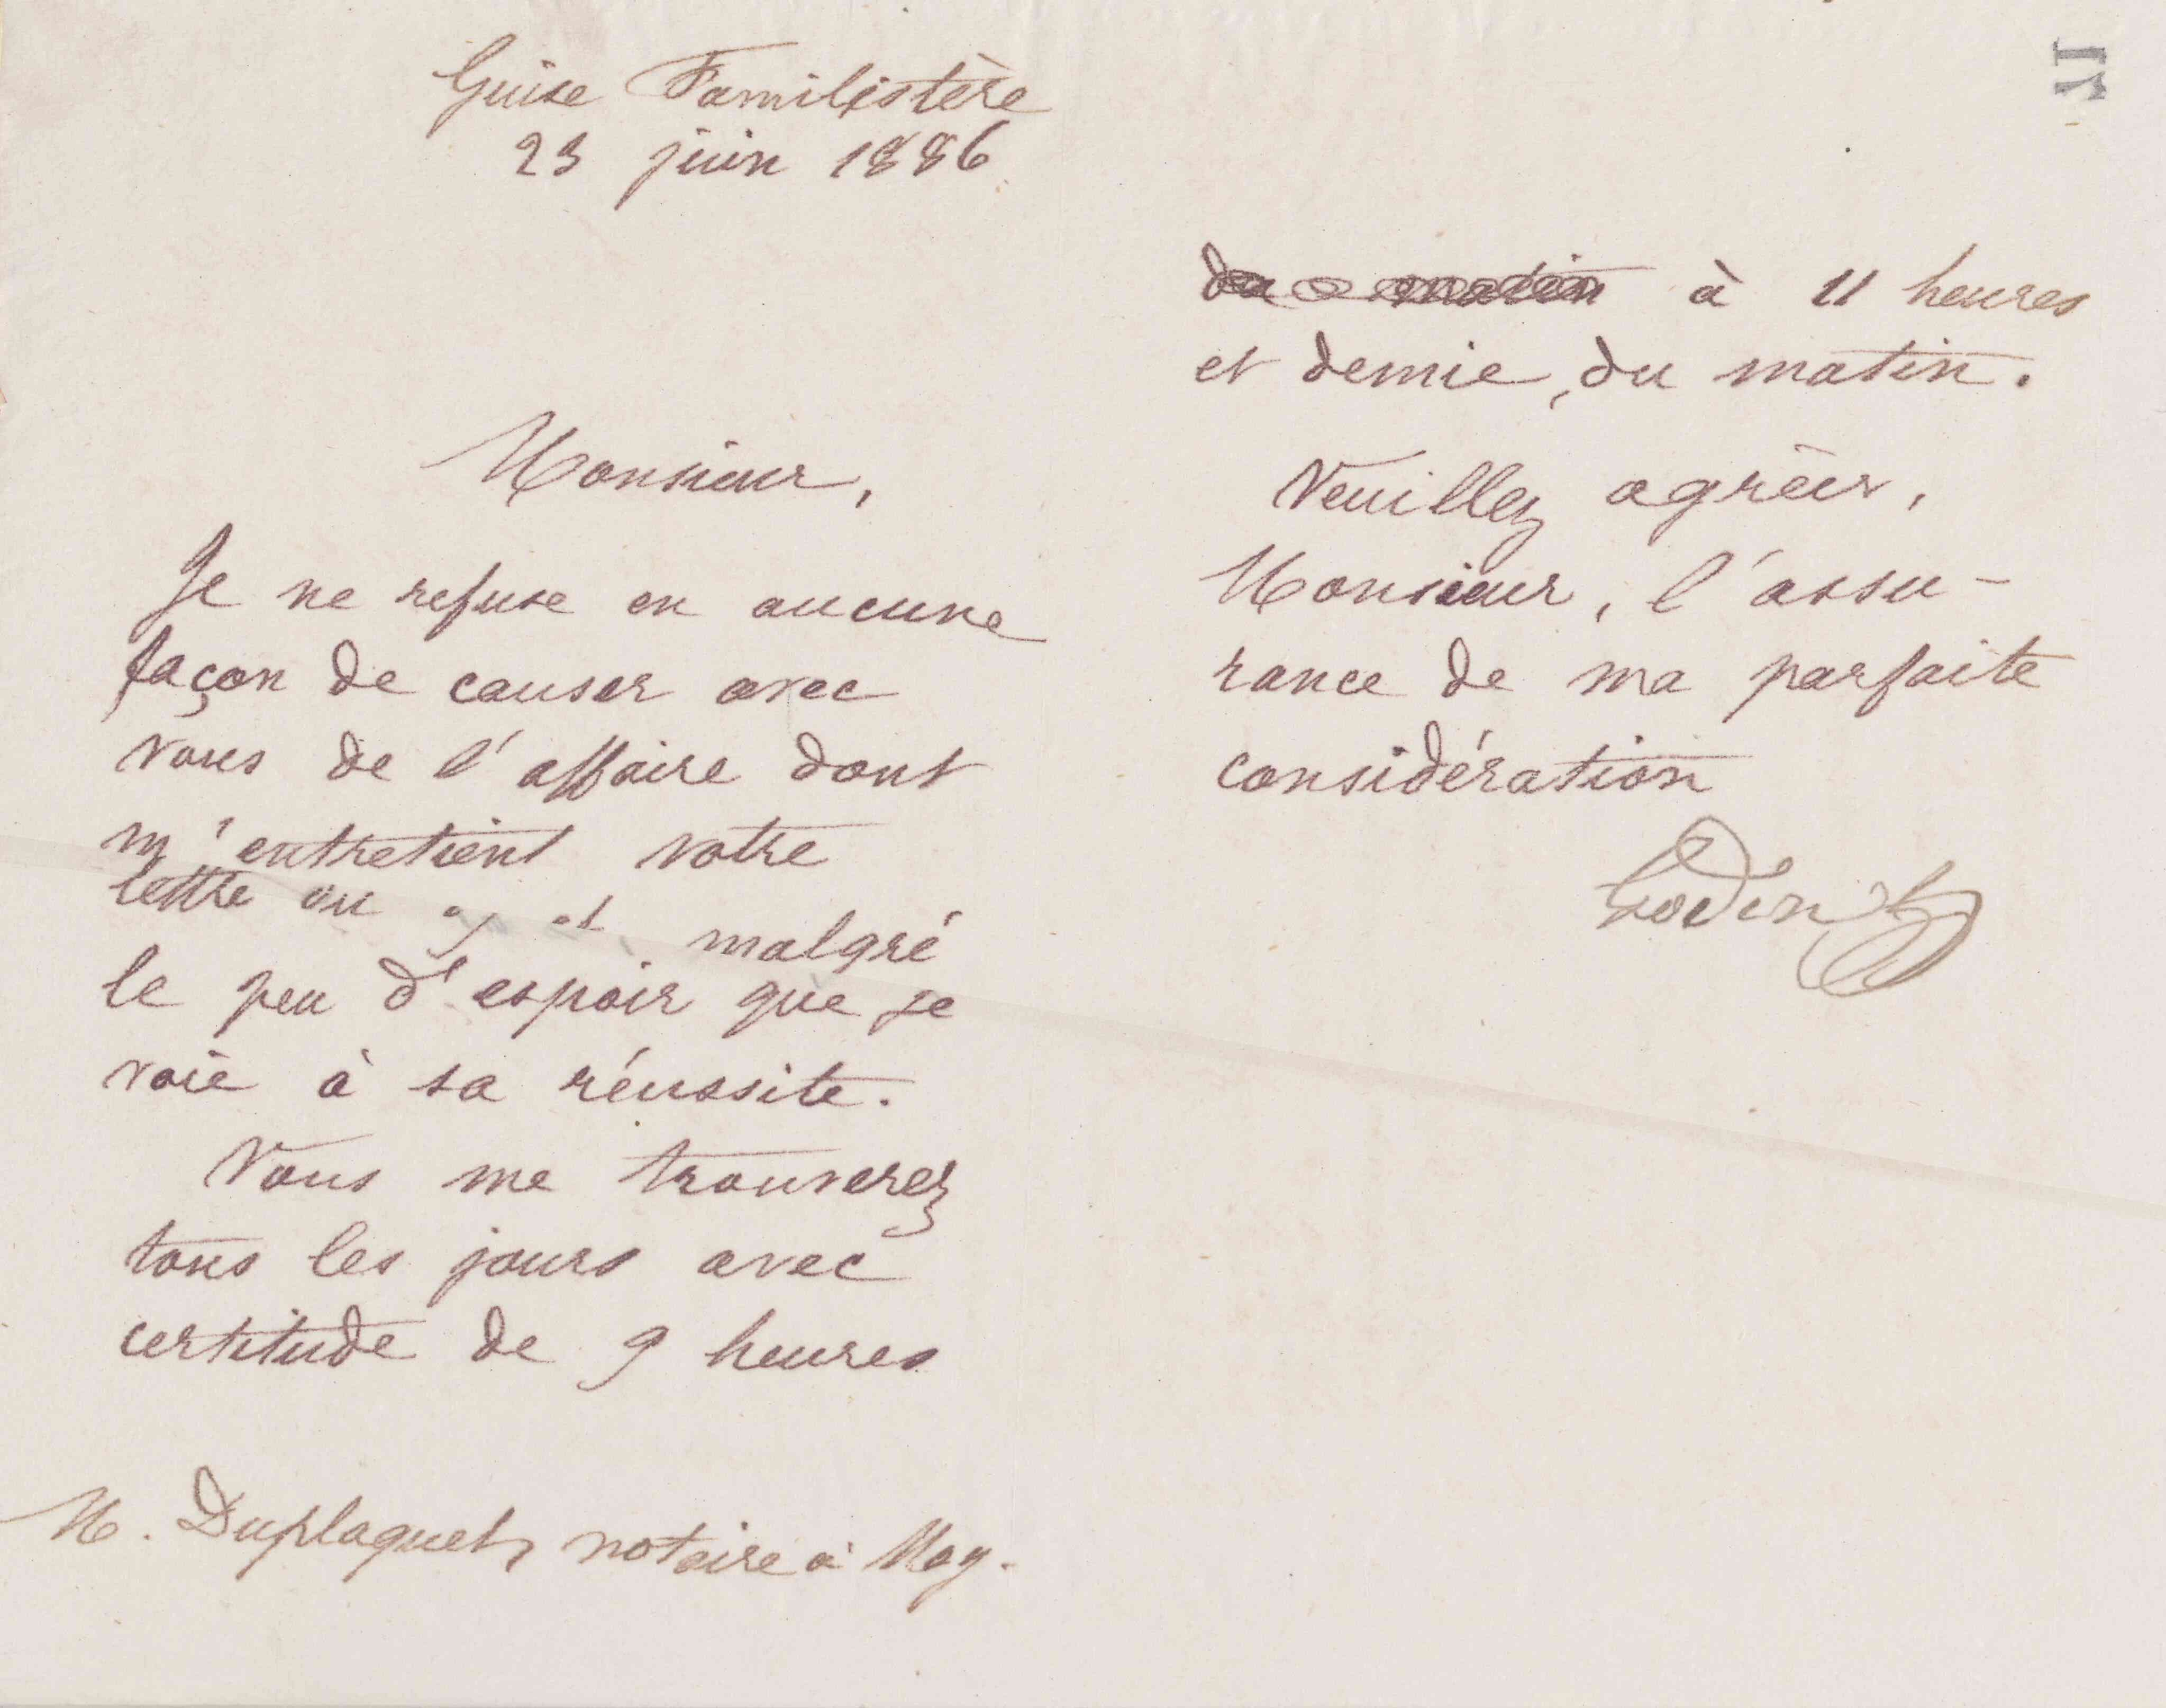 Guise Familistère
23 juin 1886
Monsieur,
Je ne refuse en aucune
façon de causer avec
vous de l'affaire dont
m'entretient votre
lettre du malgré
le peu d'espoir que je
voie à sa réussite.
Vous me trouverez
tous les jours avec
certitude de 9 heures
M. Duplaquet, notaire à Moy.
17
du matin à 11 heures
et demie, du matin.
Veuillez agréer,
Monsieur, l'assu-
rance de ma parfaite
considération
Godin